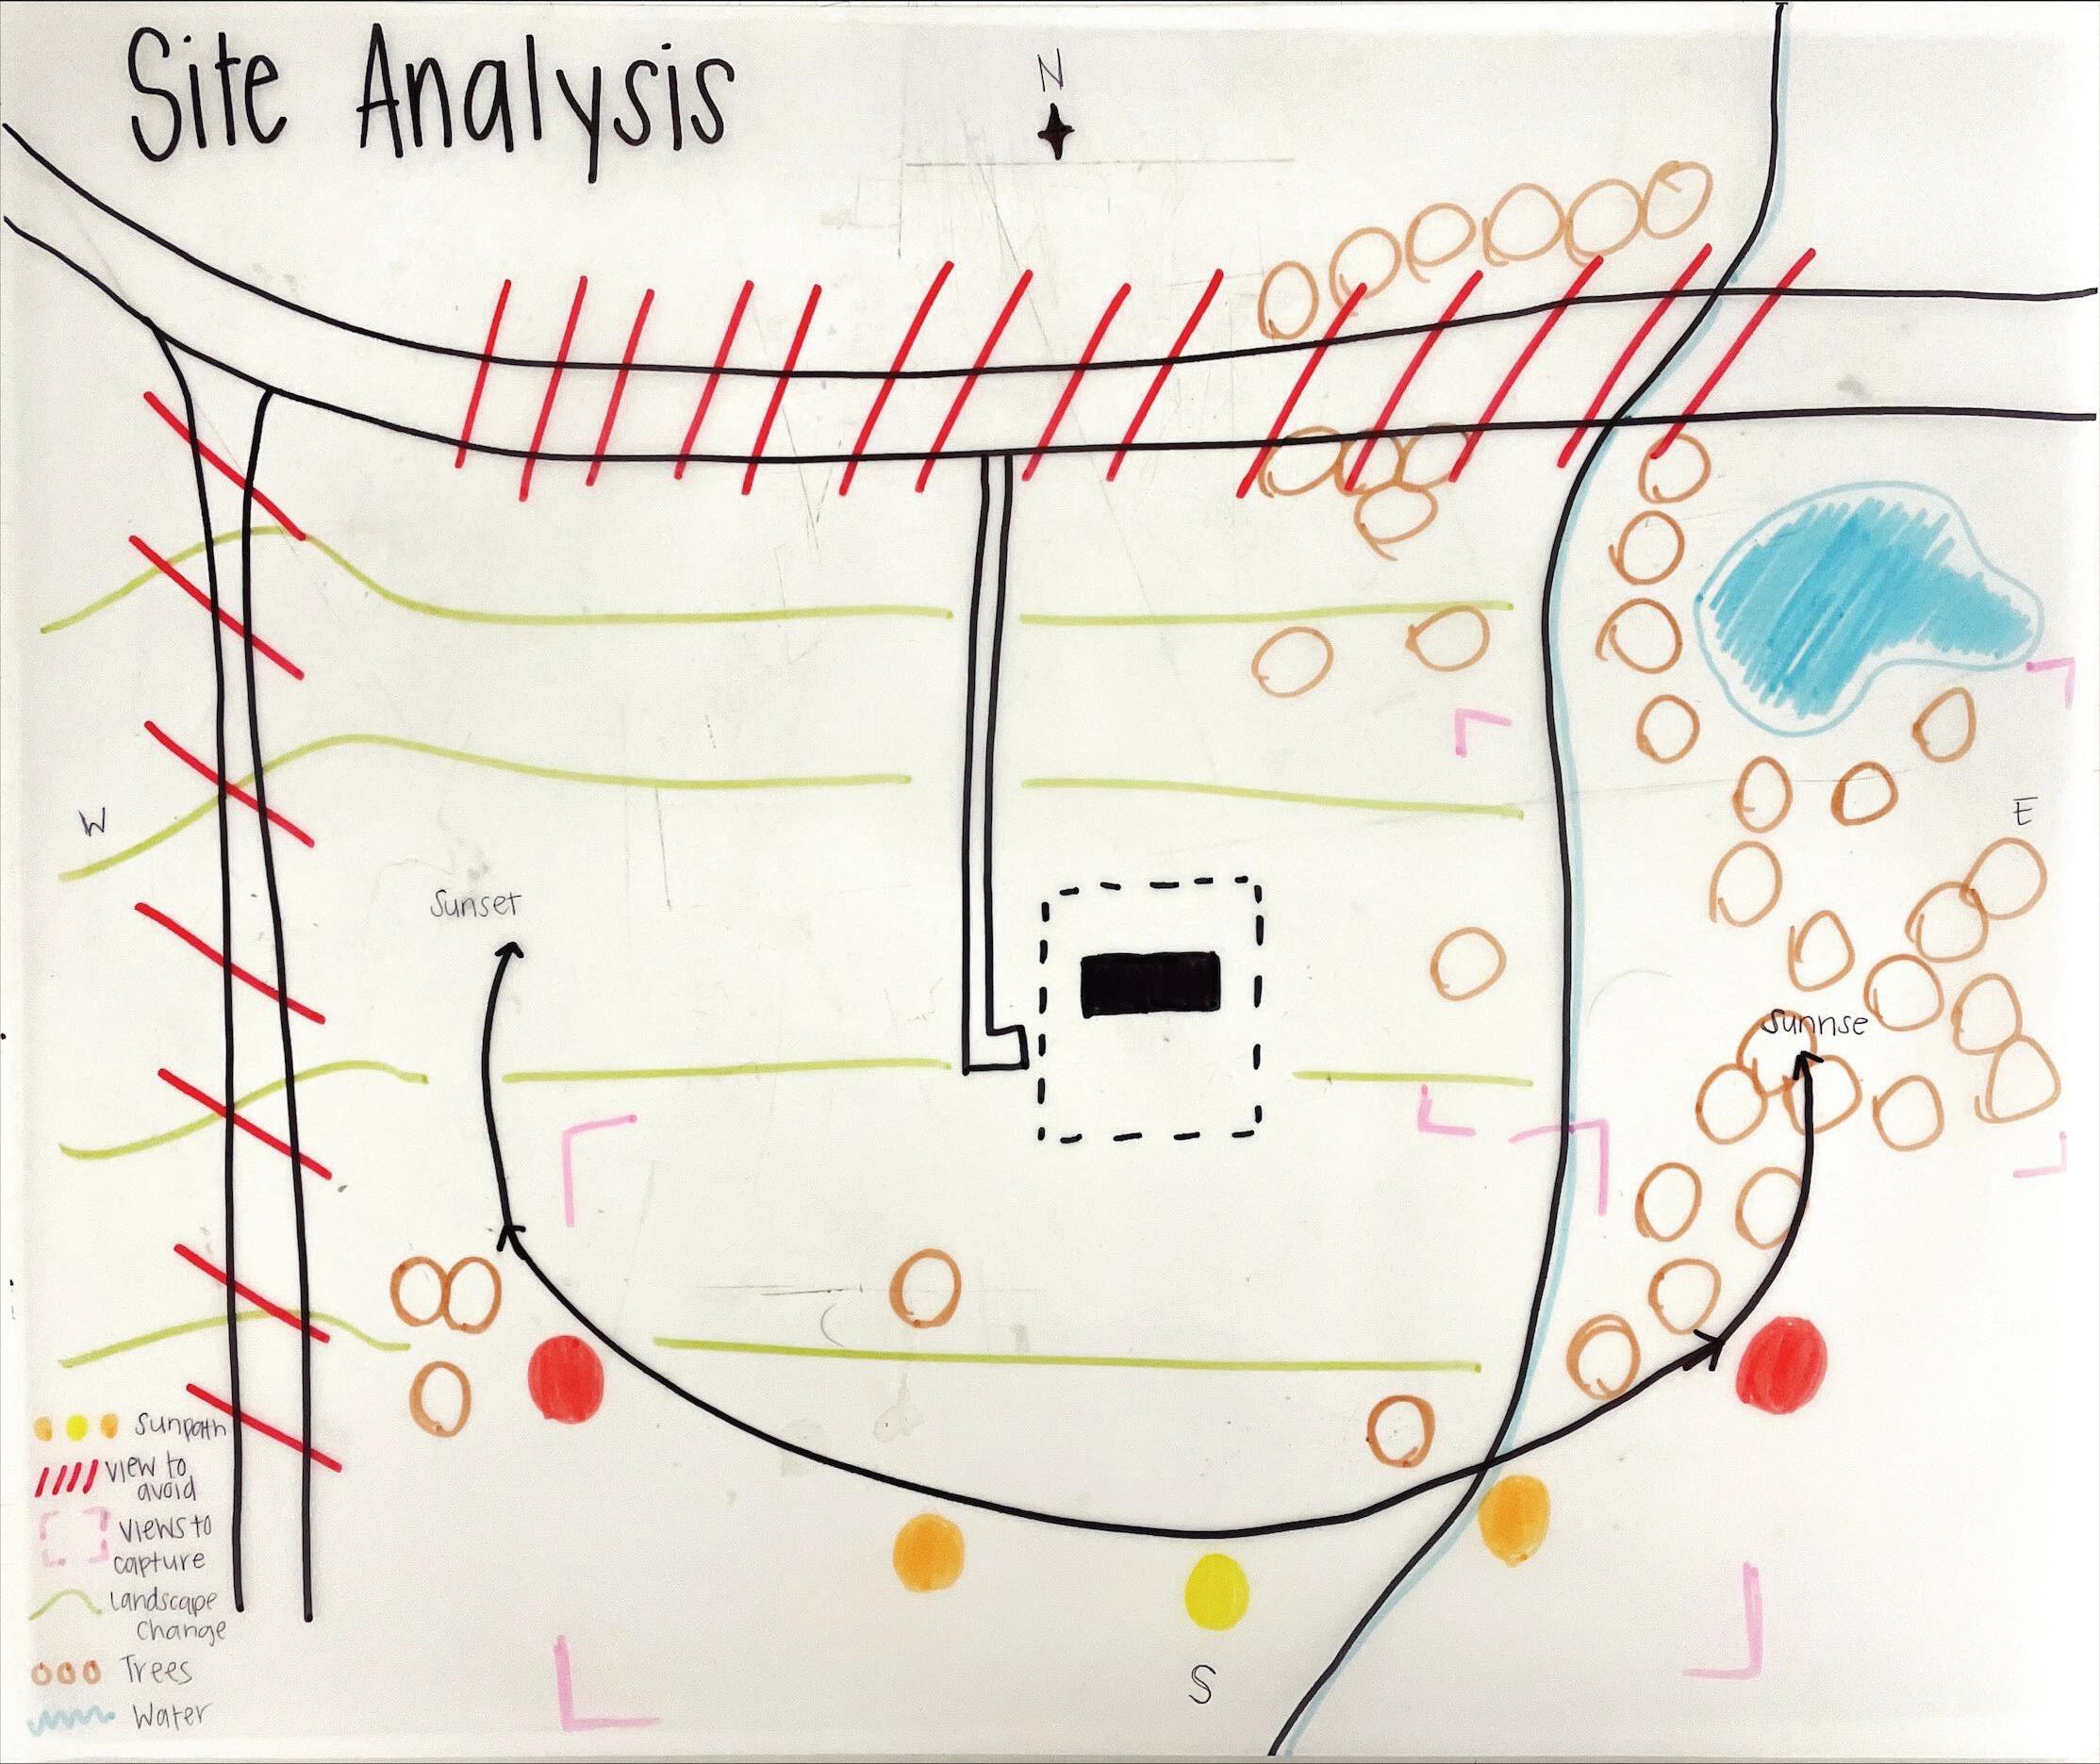 Site Analysis
N
W
E
Sunset
Sunrise
Sunpath
view to
avoid
views to
capture
Landscape
change
Trees
Water
S